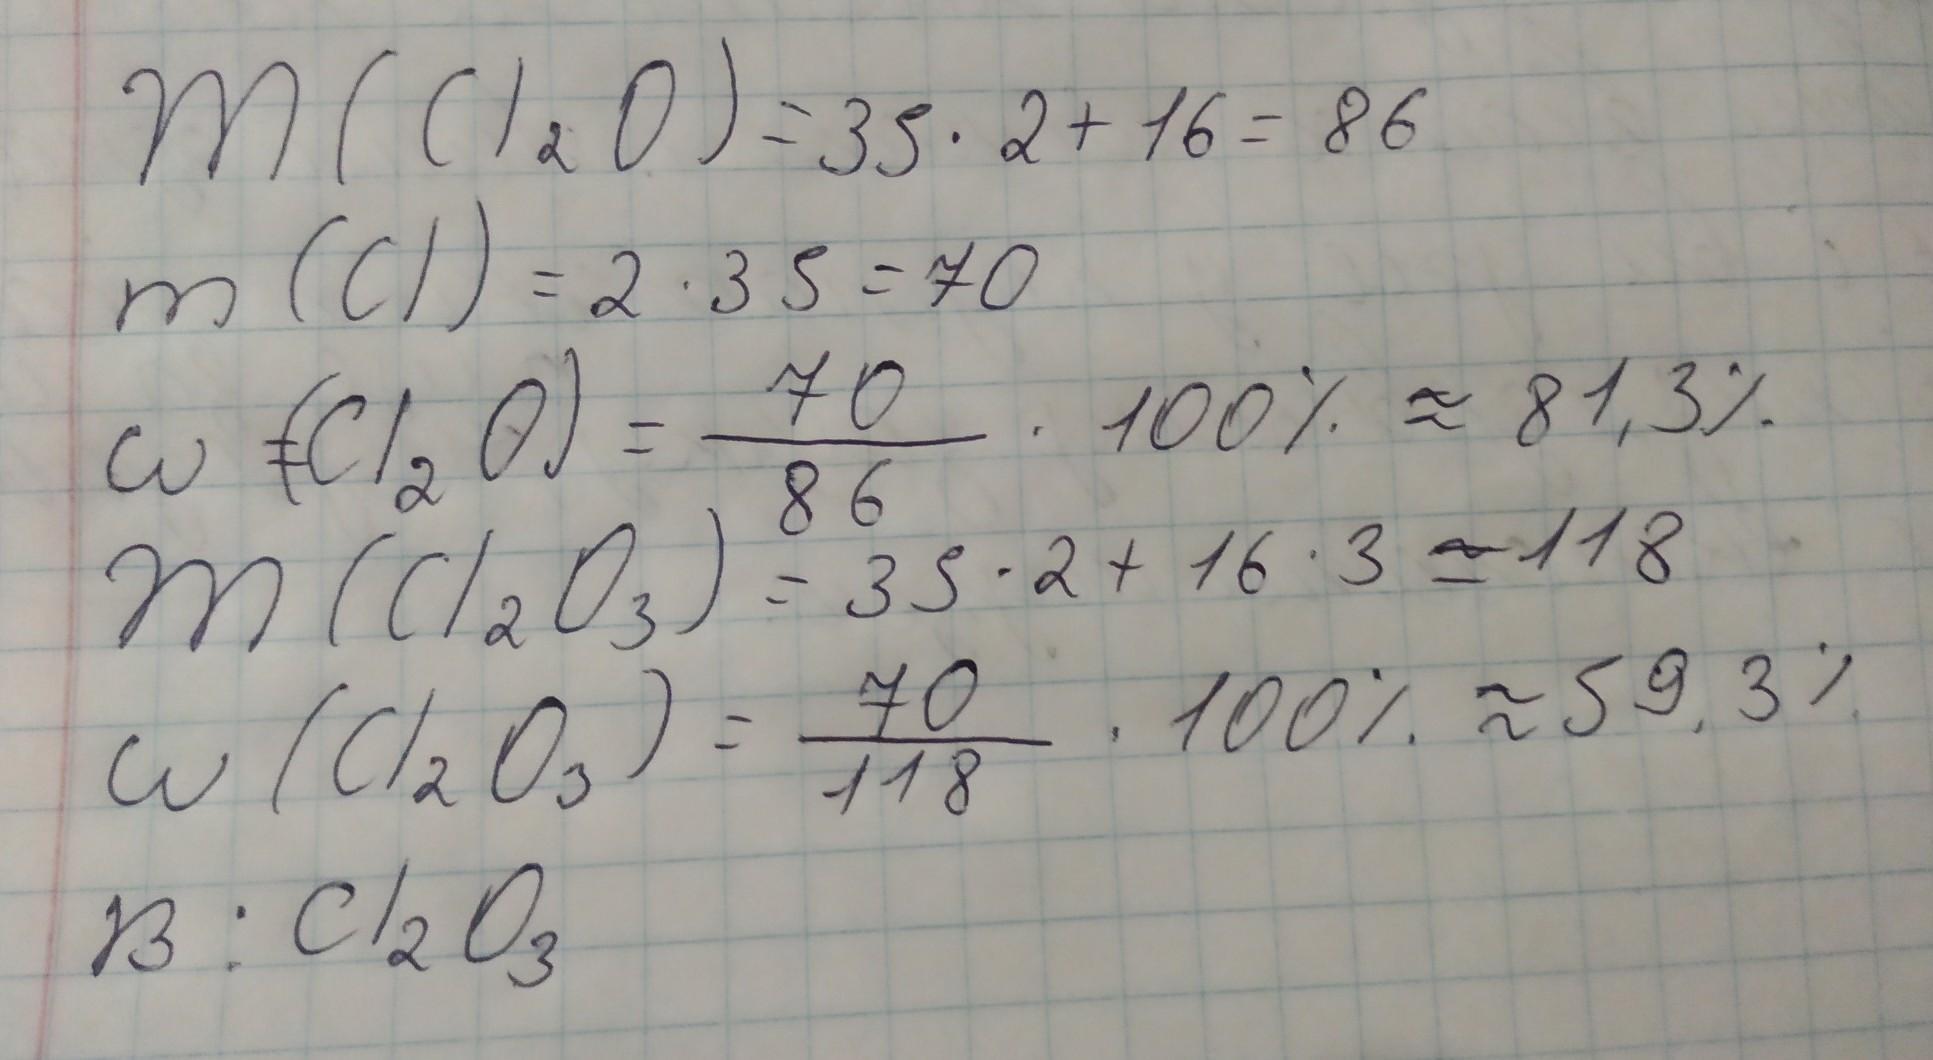 M(Cl₂O) = 35 · 2 + 16 = 86
m(Cl) = 2 · 35 = 70
ω (Cl₂O) = 70/86 · 100% ≈ 81,3%
M(Cl₂O₃) = 35 · 2 + 16 · 3 = 118
ω (Cl₂O₃) = 70/118 · 100% ≈ 59,3%
В: Cl₂O₃